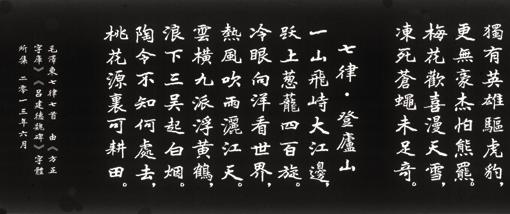 獨有英雄驅虎豹，
更無豪杰怕熊羆。
梅花歡喜漫天雪，
凍死蒼蠅未足奇。
七律·登廬山
一山飛峙大江邊，
跃上葱蘢四百旋。
冷眼向洋看世界，
熱風吹雨灑江天。
雲橫九派浮黄鶴，
浪下三吴起白烟。
陶令不知何處去，
桃花源裏可耕田。
毛澤東七律七首　由《方正
字庫》《吕建德魏碑》字體
所集　二零一三年六月